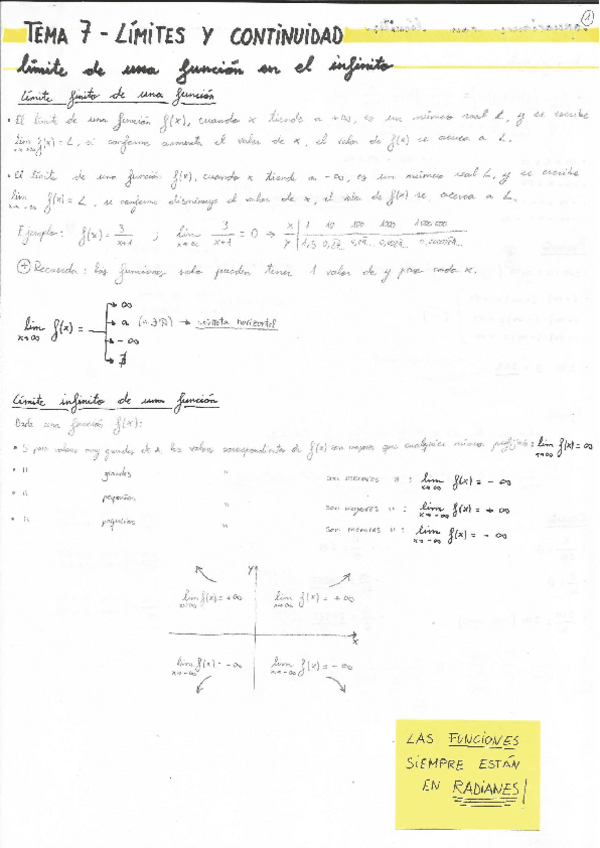 1
TEMA 7 - LÍMITES Y CONTINUIDAD
límite de una función en el infinito
Límite finito de una función
• El límite de una función f(x), cuando x tiende a +∞, es un número real L, y se escribe
lim x→∞ f(x) = L, si conforme aumenta el valor de x, el valor de f(x) se acerca a L.
• El límite de una función f(x), cuando x tiende a -∞, es un número real L, y se escribe
lim x→-∞ f(x) = L, si conforme disminuye el valor de x, el valor de f(x) se acerca a L.
Ejemplo: f(x) = 3/x+1 ; lim x→∞ 3/x+1 = 0 → x | 1 10 100 1000
y | 1,5
+ Recuerda: las funciones solo pueden tener 1 valor de y para cada x.
→ ∞
lim x→∞ f(x) = → a (a∃ℝ) → asíntota horizontal
→ -∞
→ ∄
Límite infinito de una función
Dada una función f(x):
• S para valores muy grandes de x, los valores correspondientes de f(x) son mayores que cualquier número prefijado: lim x→∞ f(x) = ∞
• " grandes " son menores " : lim x→∞ f(x) = -∞
• " pequeños " son mayores " : lim x→-∞ f(x) = +∞
• " pequeños " son menores " : lim x→-∞ f(x) = -∞
y
lim f(x) = +∞ lim f(x) = +∞
x
lim x→-∞ f(x) = -∞ lim x→-∞ f(x) = -∞
LAS FUNCIONES
SIEMPRE ESTÁN
EN RADIANES!